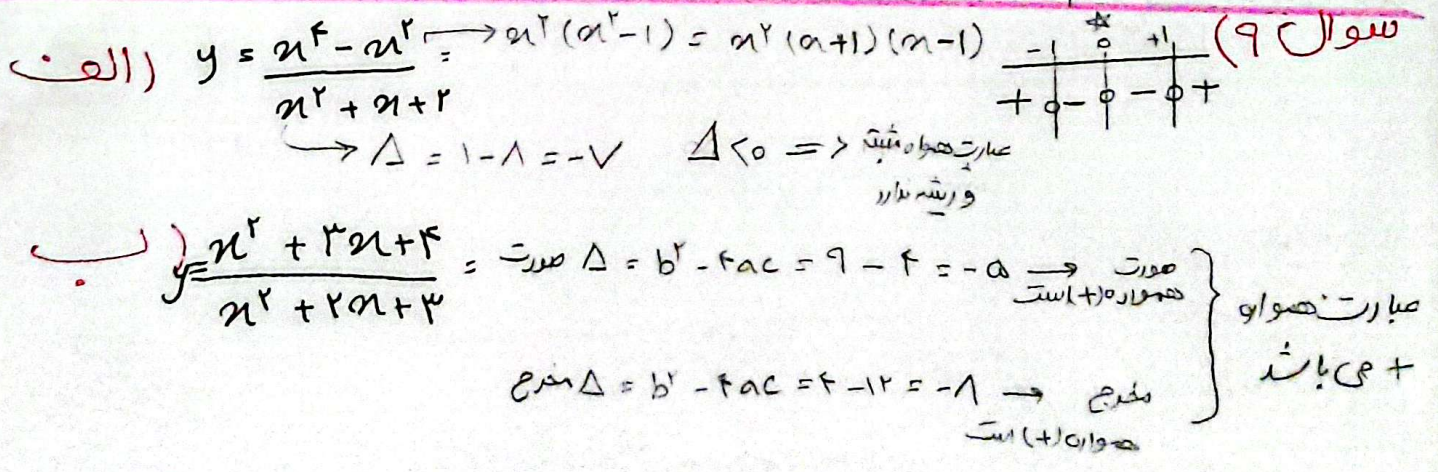 سوال ۹)
الف) y = (x^۴ - x^۲)/(x^۲ + x + ۲) = → x^۲(x^۲-۱) = x^۲(x+۱)(x-۱)
-۱ ۰ +۱
+ ۰ - ۰ - ۰ +
→ Δ = ۱-۸ = -۷ Δ<۰ => عبارت همواره مثبته
و ریشه ندارد
ب) y = (x^۲ + ۳x + ۴)/(x^۲ + ۲x + ۳) = صورت Δ = b^۲ - ۴ac = ۹ - ۴ = -۵ → صورت
همواره (+) است
مخرج Δ = b^۲ - ۴ac = ۴ - ۱۲ = -۸ → مخرج
همواره (+) است
عبارت همواره
+ می باشد